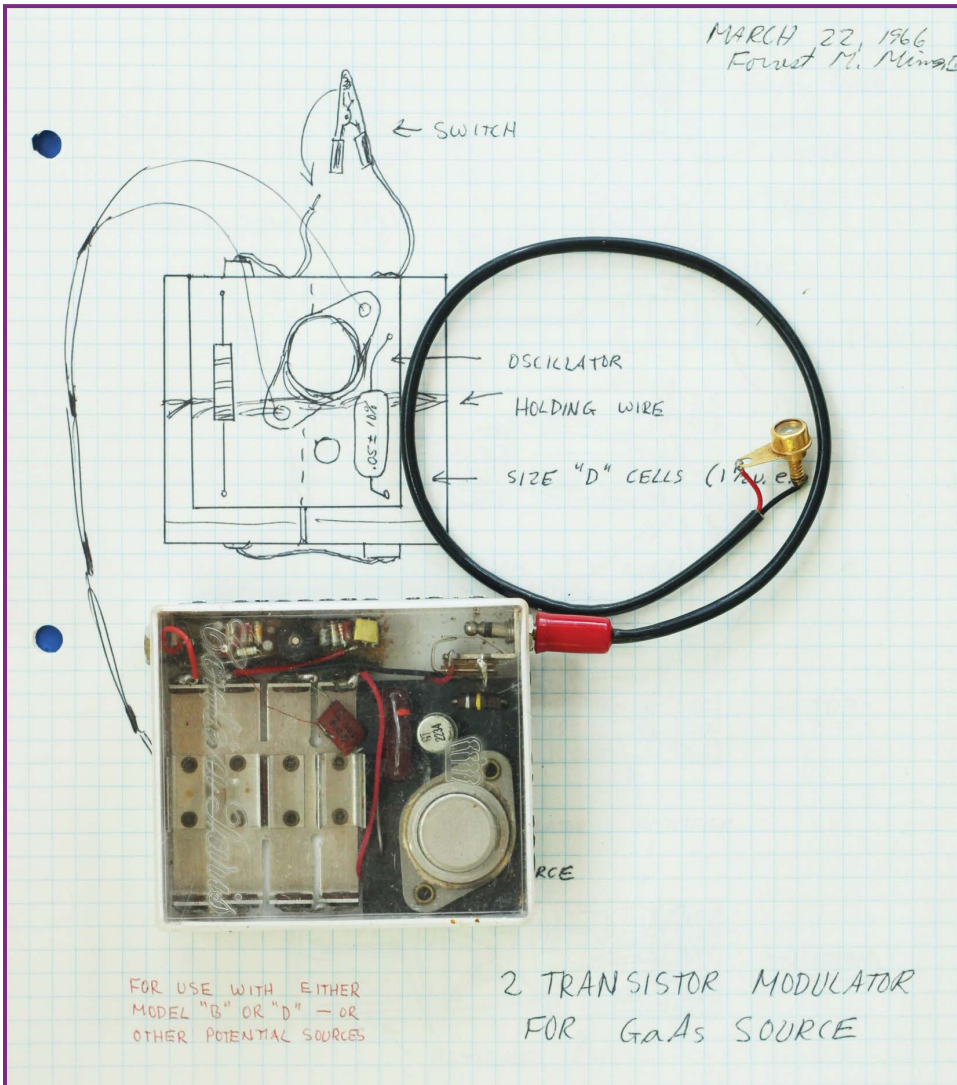 MARCH 22, 1966
Forrest M. Mims
SWITCH
OSCILLATOR
HOLDING WIRE
.05 ± 10%
SIZE "D" CELLS (1 1/2 v. e
2N34
RCE
FOR USE WITH EITHER
MODEL "B" OR "D" — OR
OTHER POTENTIAL SOURCES
2 TRANSISTOR MODULATOR
FOR GaAs SOURCE